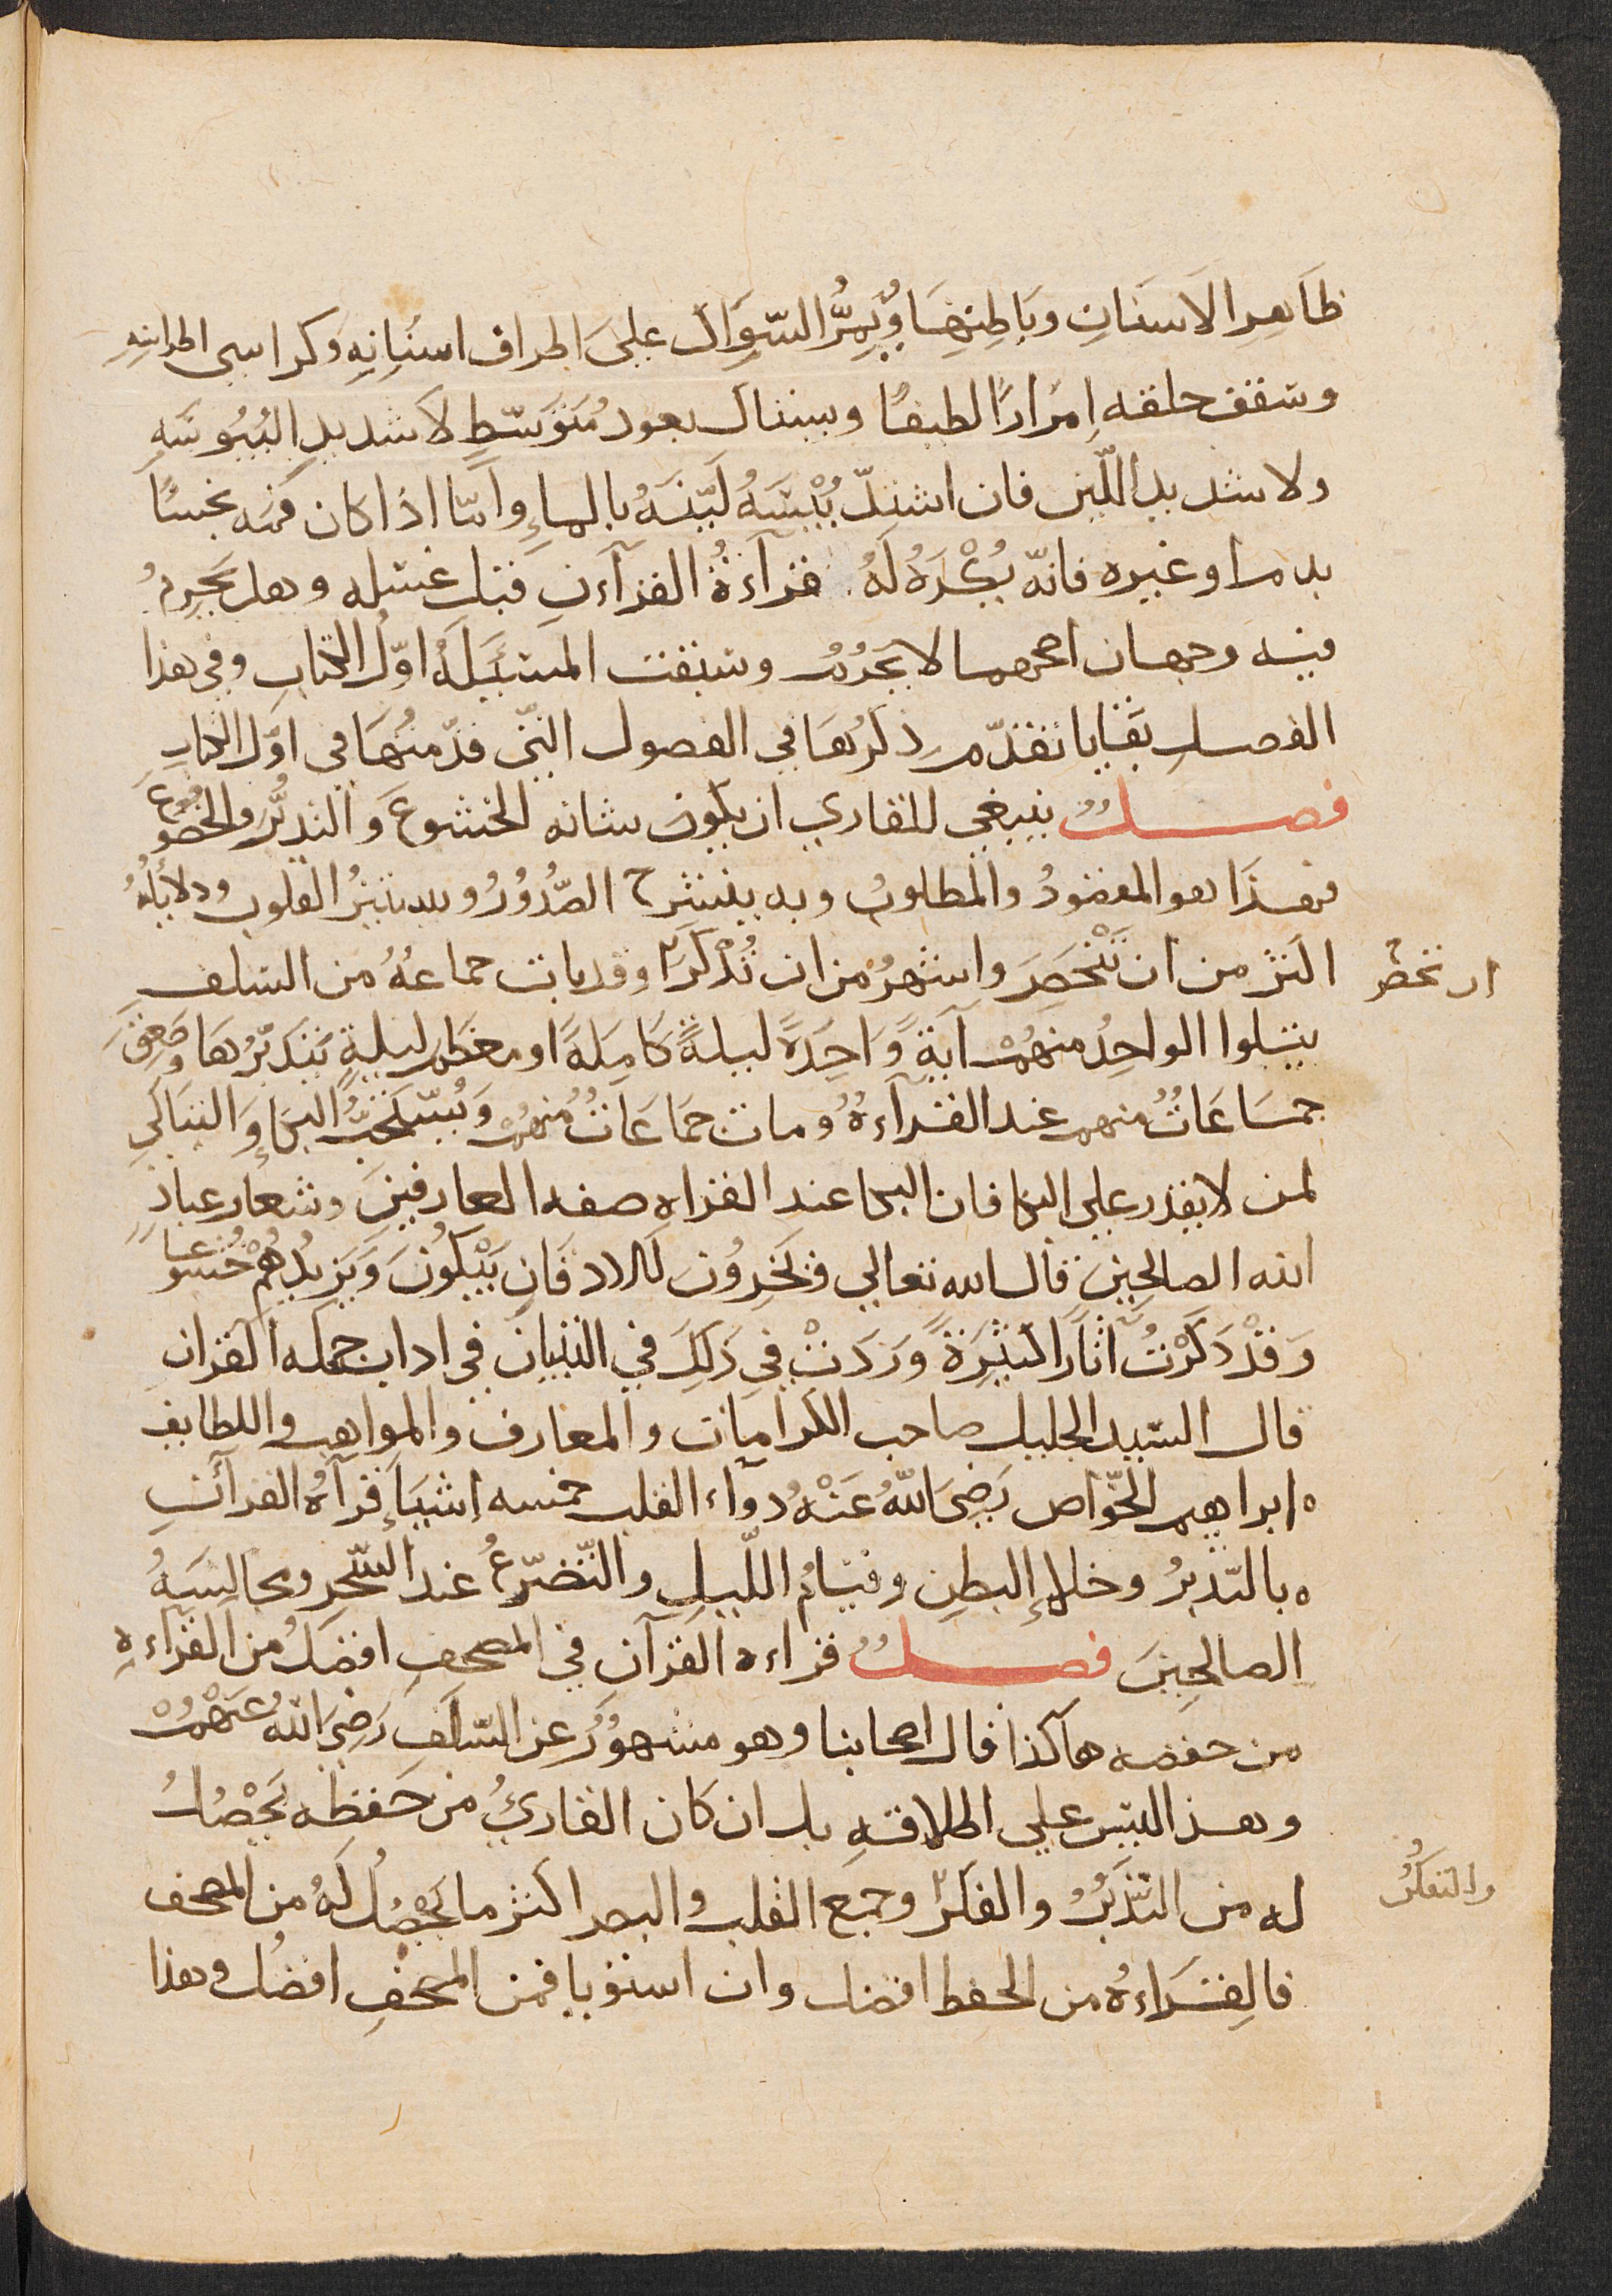 ظَاهِرِ الاَسنَانِ وبَاطِنِهَا وَيُمِرُّ السِّوَاك علىَ اطراف اسنَانِهِ وكراسى اطراسِهِ
وسقف حلقه اِمْرَارًا لطيفًا ويستاك بعود مُتَوَسّطٍ لا شديدِ اليُبُوسَهِ
ولا شديد اللّين فان اشتدّ يُبْسُهُ لَيّنَهُ بالماءِ وامّا اذا كان فمَه نجسًا
بدم او غيره فانّه يُكْرَهُ لَهُ قرآءةُ القرآءنِ قبل غسله وهل يَحرِمُ
فيه وجهان اصحهما لا يَحْرُمُ وسبقت المسئَلَهُ اوّل الكتابِ وفي هذا
الفصلِ بقايا تقدّم ذكرُهَا في الفصول التي قدّمتُهَا في اوّل الكتابِ
فصل ينبغي للقاري ان يكون شانه الخشوعَ والتدبُّرَ والخضُوعَ
فهذَا هو المقصُودُ والمطلوبُ وبه ينشرح الصُّدُورُ ويستنيرُ القلوب ودلائلُهُ
اكثر من ان تَنْحَصِرَ واشهرُ من ان تُذْكَرَ وقد بات جماعهُ من السلفِ
ان تحصَر
يتلوا الواحِدُ منهُم آيةً وَاحِدَةً ليلةً كَامِلَةً او معظم ليلةٍ يَتَدبّرُهَا وصَعِقَ
جمَاعَاتٌ منهم عند القرآءةُ ومات جمَاعَاتٌ مُنهُم وَيُسْتَحَبُّ البُكَاءِ وَالتبَاكي
لمن لا يقدر علي البكا فان البكا عند القراه صفه العارفينَ وشعار عبادِ
الله الصالحينَ قال الله تعالي وَيَخِرُونَ لَلاذقَانِ يَبْكُونَ وَيَزيدُهُمْ خُشوعاً
وَقدْ ذَكَرْتُ آثَارًا كثِيَرةً وَرَدَتْ في ذَلِكَ في التبيَانِ في اداب حمله القران
قال السّيد الجليل صاحب الكرامات والمعارف والمواهب واللطايف
ابراهيم الخوّاص رَضِىَ اللهُ عَنْهُ دوآء القلب خمسه اشيَا قرآهُ القرآنِ
بالتّدبرُ وخلاء البطنِ وقيَامُ اللّيلِ والتّضرّعُ عند السّحر ومجالسَهُ
الصالحِينَ فصل قراءه القرآن في المصحفِ افضلُ من القراءهِ
من حفضه هاكذا قال اصحابنا وهو مشهوُرٌ عن السّلَفِ رَضِىَ اللهُ عَنْهُمْ
وهذا ليس علي اطلاقهِ بل ان كان القاريُ من حَفظه يَحْصُلُ
له من التدّبرُ والفكرّ وجمع القلب والبصر اكثر ما يَحْصُلُ لَهُ من المصحف
والتفكرُ
فالقراءهُ من الحفظ افضل وان استويا فمن المصحفِ افضلُ وهذا